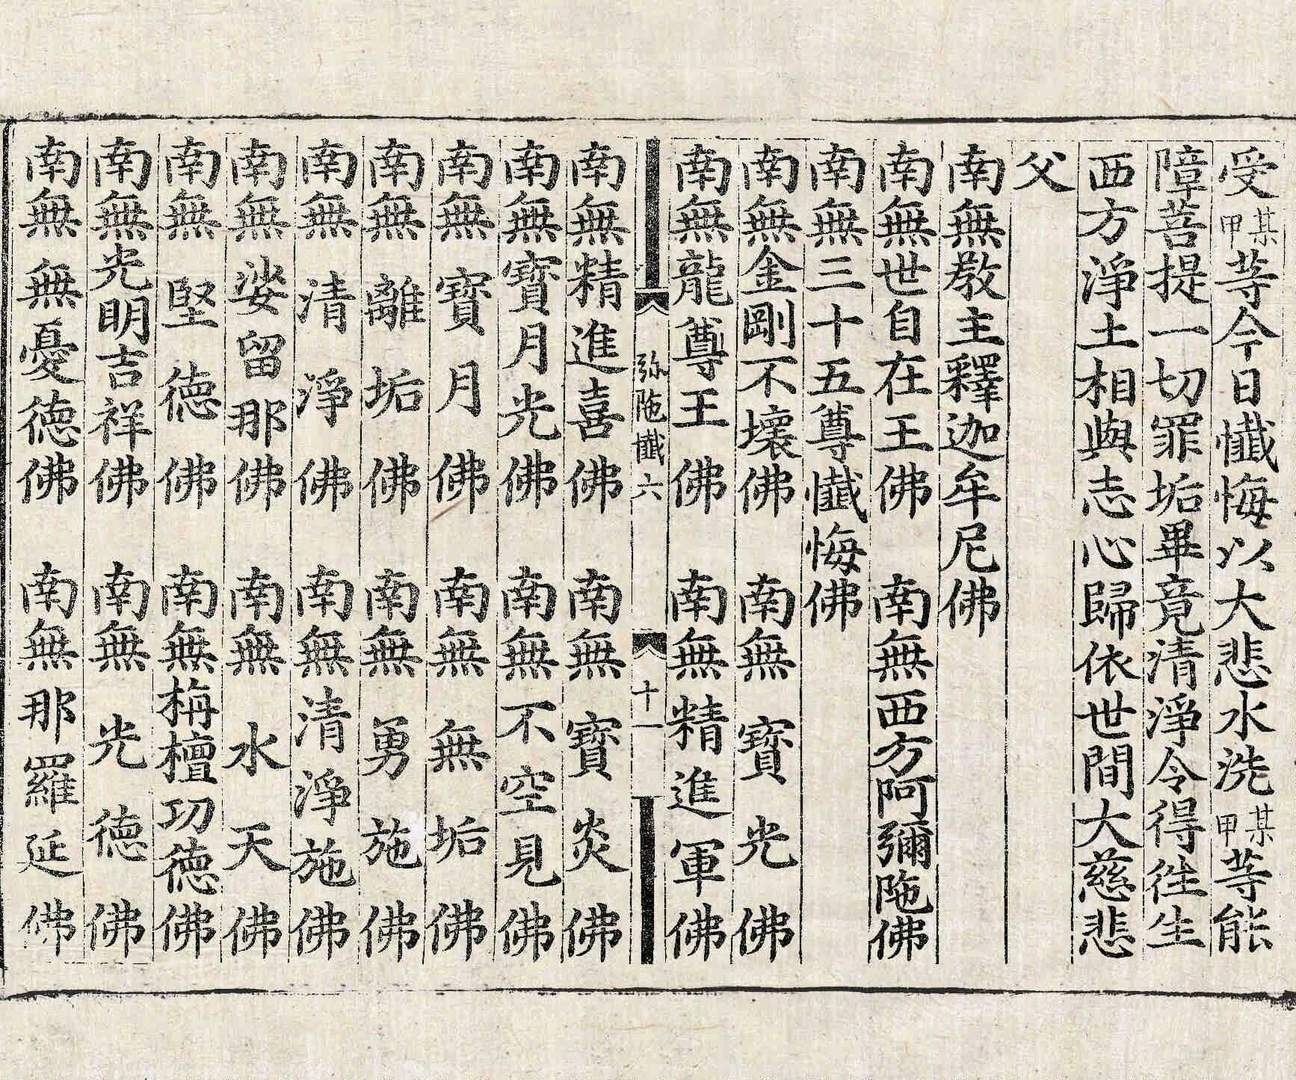 受某甲等今日懺悔以大悲水洗某甲等能
障菩提一切罪垢畢竟清淨令得徃生
西方淨土相與志心歸依世間大慈悲
父
南無敎主釋迦牟尼佛
南無世自在王佛　南無西方阿彌陁佛
南無三十五尊懺悔佛
南無金剛不壞佛　南無寶光佛
南無龍尊王佛　南無精進軍佛
弥陁懺六　十一
南無精進喜佛　南無寶炎佛
南無寶月光佛　南無不空見佛
南無寶月佛　南無無垢佛
南無離垢佛　南無勇施佛
南無清淨佛　南無清淨施佛
南無娑留那佛　南無水天佛
南無堅德佛　南無栴檀功德佛
南無光明吉祥佛　南無光德佛
南無無憂德佛　南無那羅延佛